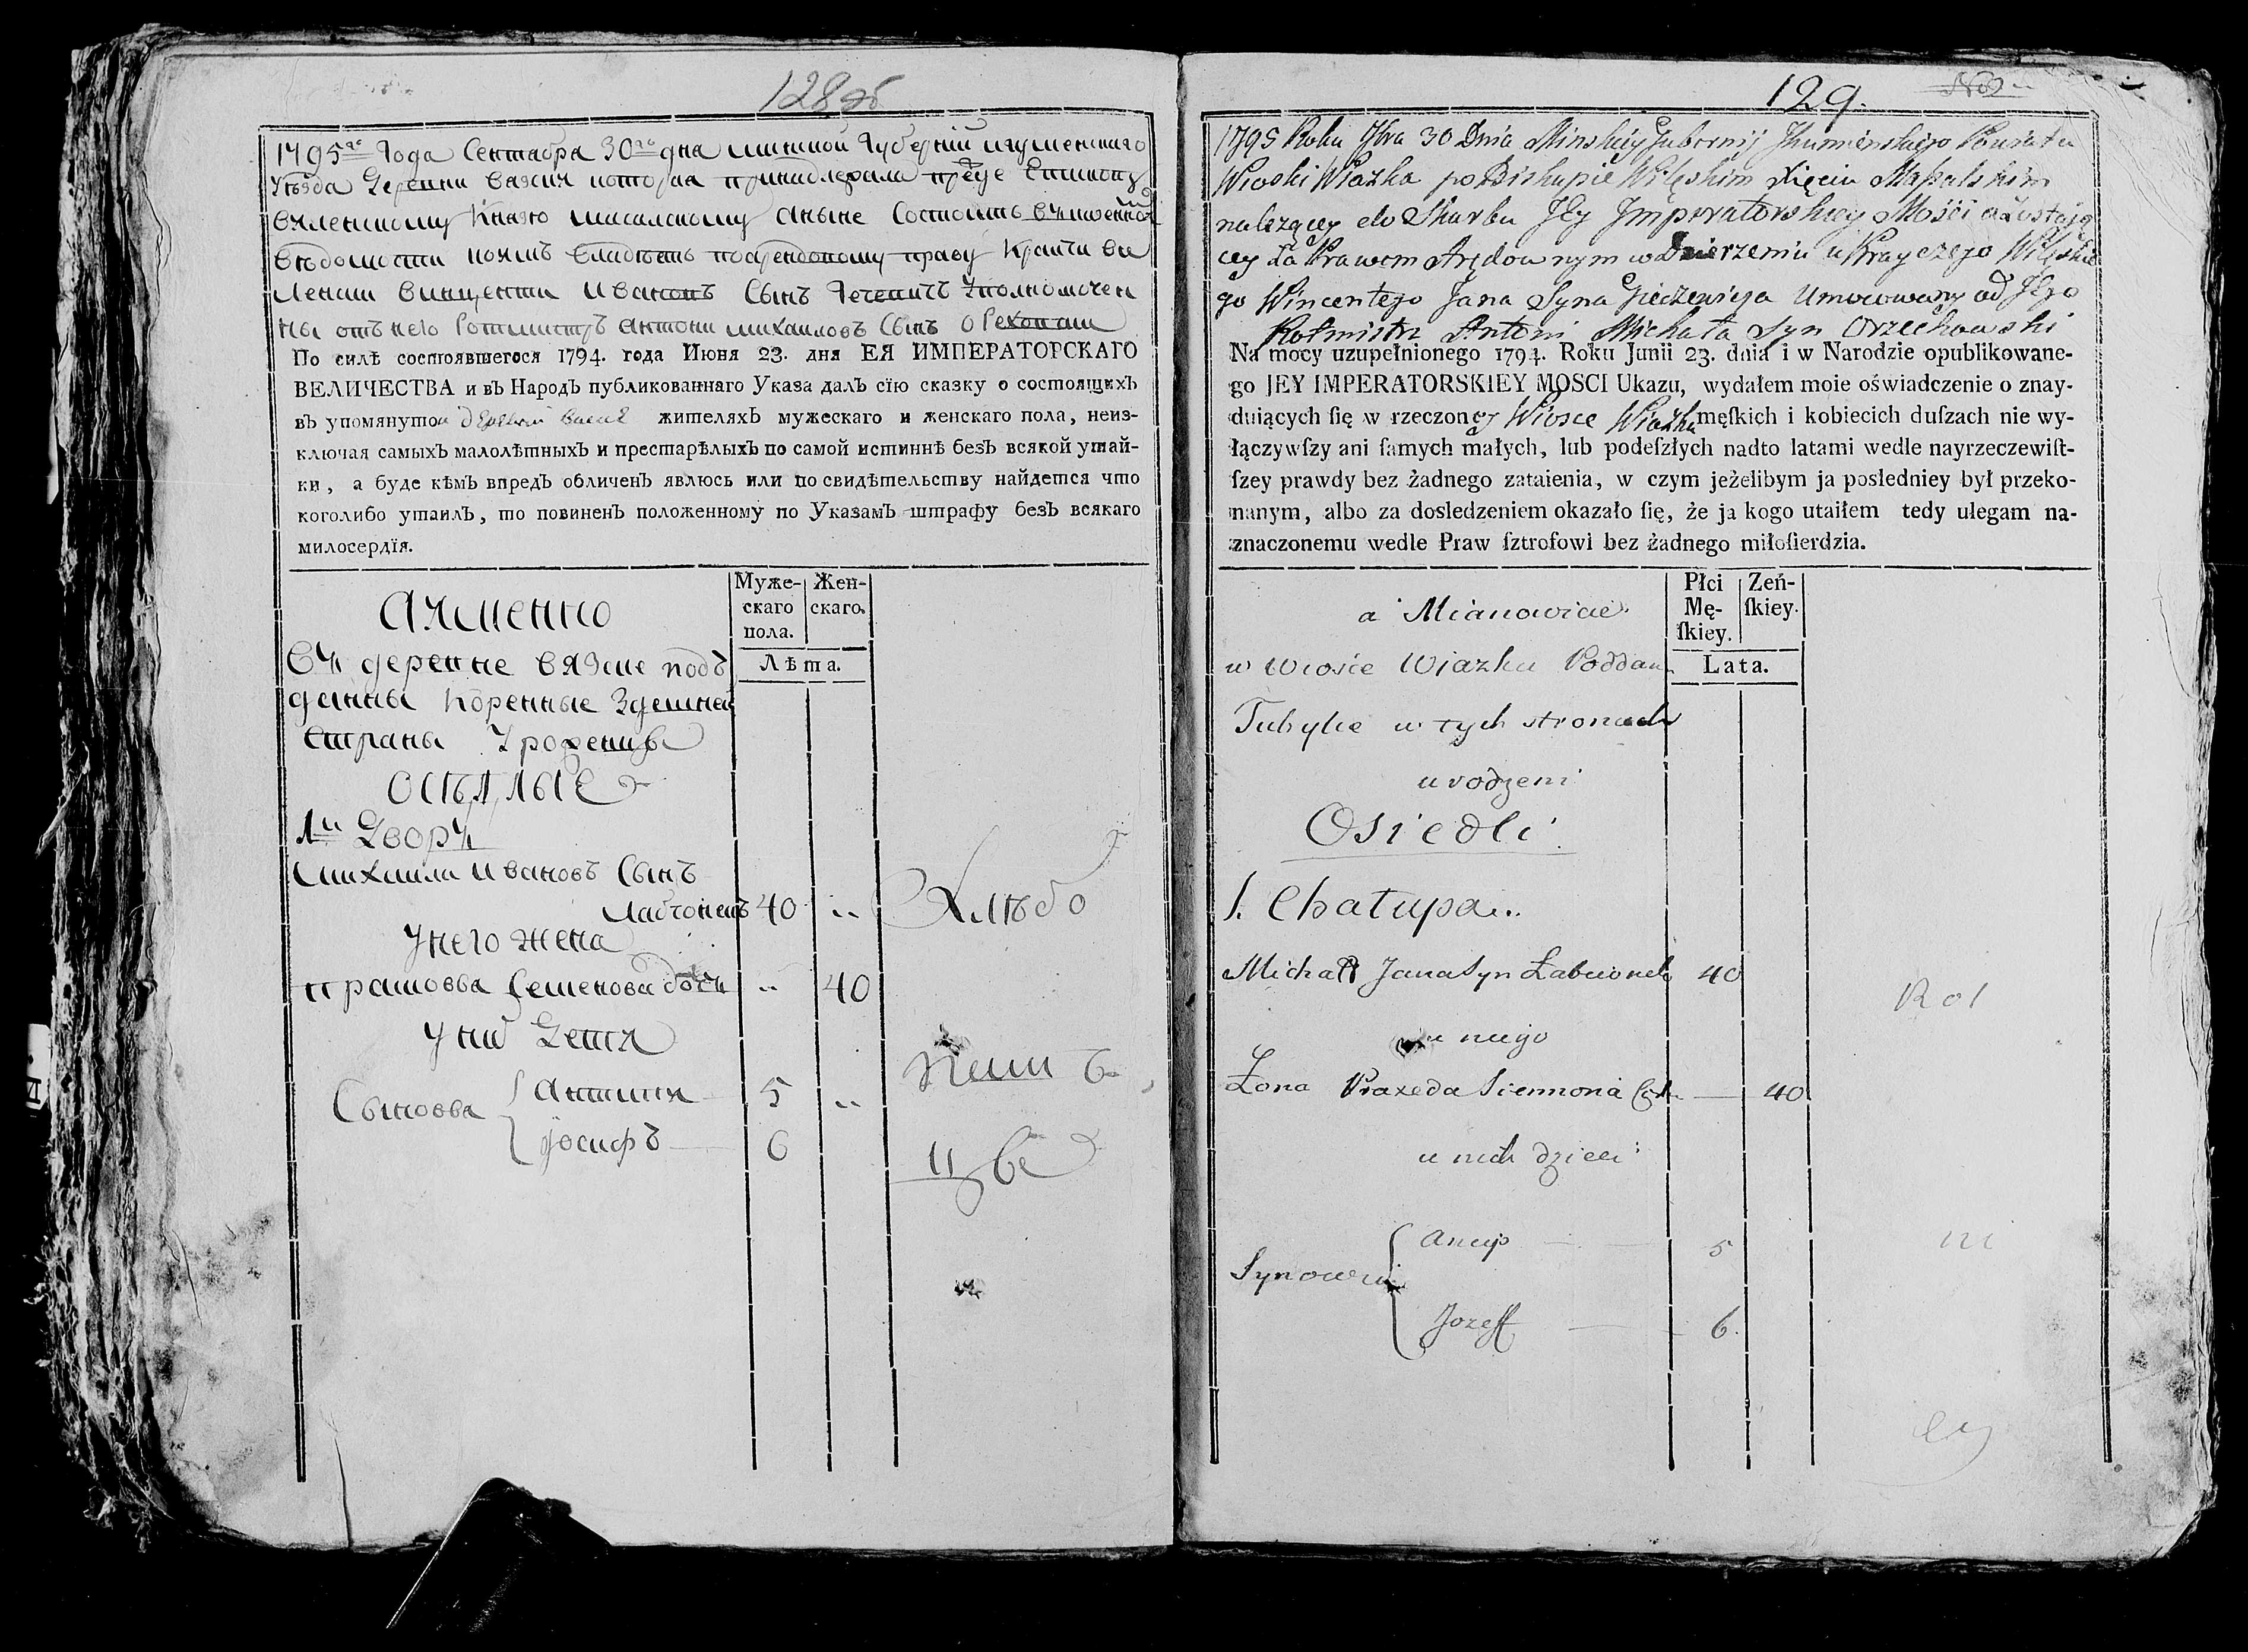 128 об
1795го Года Сентабра 30го дна минской Губернии игуменского
Уезда Деревни Вазки котораа принадлежала прежде Епископу
виленскому Князю масалскому аныне Состоитъ въ казенной
ведомости коимъ владеетъ поарендовному праву Крайчи ви
ленски Винценти Ивановъ Сынъ Геченичъ Уполномочен
ны отъ него Ротмистръ антони михаиловъ Сынъ Орехоски
По силѣ состоявшегося 1794. года Июня 23. дня ЕЯ ИМПЕРАТОРСКАГО
ВЕЛИЧЕСТВА и въ Народъ публикованнаго Указа далъ сїю сказку о состоящихъ
въ упомянутои деревни Васке жителяхъ мужескаго и женскаго пола, неиз-
ключая самыхъ малолѣтныхъ и престарѣлыхъ по самой истиннѣ безъ всякой утай-
ки, а буде кѣмъ впредъ обличенъ явлюсь или по свидѣтельству найдется что
коголибо утаилъ, то повиненъ положенному по Указамъ штрафу безъ всякаго
милосердїя.
Муже-скаго пола. Жен-скаго.
Лѣта.
Аименно
въ деревне вязке подъ
данны коренные здешней
страны Уроженцы
оселые
1й Дворъ
михаила ивановъ Сынъ
Лабчонекъ 40 „ Хлѣбо
Унего жена
прасковьа Семенова дочь „ 40
У них Детя
Сыновьа Антипа 5 „ паш
Иосифъ 6 цы
129.
1795 Roku 7bra 30 Dnia Minskiey Gubernij Ihumenskiego Powiatu
Wioski Wiazka po Biskupie Wileskim Xięciu Massalskim
nalezącey do Skarbu Jey Jmperatorskiey Mości a zostają
cey za Prawem Arędownym w Dzierzeniu u Krayczego Wileskie
go Wincentego Jana Syna Gieczewicza Umocowany od Jego
Rotmistrz Antoni Michała Syn Orzechowski
Na mocy uzupełnionego 1794. Roku Junii 23. dnia i w Narodzie opublikowane-
go JEY IMPERATORSKIEY MOSCI Ukazu, wydałem moie oświadczenie o znay-
duiących ſię w rzeczoney Wiosce Wiazka męſkich i kobiecich duſzach nie wy-
łączywſzy ani ſamych małych, lub podeſzłych nadto latami wedle nayrzeczewiſt-
ſzey prawdy bez żadnego zataienia, w czym jeżelibym ja posledniey był przeko-
nanym, albo za dosledzeniem okazało ſię, że ja kogo utaiłem tedy ulegam na-
znaczonemu wedle Praw ſztrofowi bez żadnego miłoſierdzia.
Płci Mę-ſkiey. Zeń-ſkiey.
Lata.
a Mianowicie
w Wiosce Wiazka Poddani
Tubylce w tych stronach
urodzeni
Osiedli
1. Chałupa
Michał Jana Syn Łabcionek 40
Rol
u niego
Żona Praxeda Siemiona Cor 40
u nich dzieci
Synowie Ancip 5 ni
Jozeff 6
cy